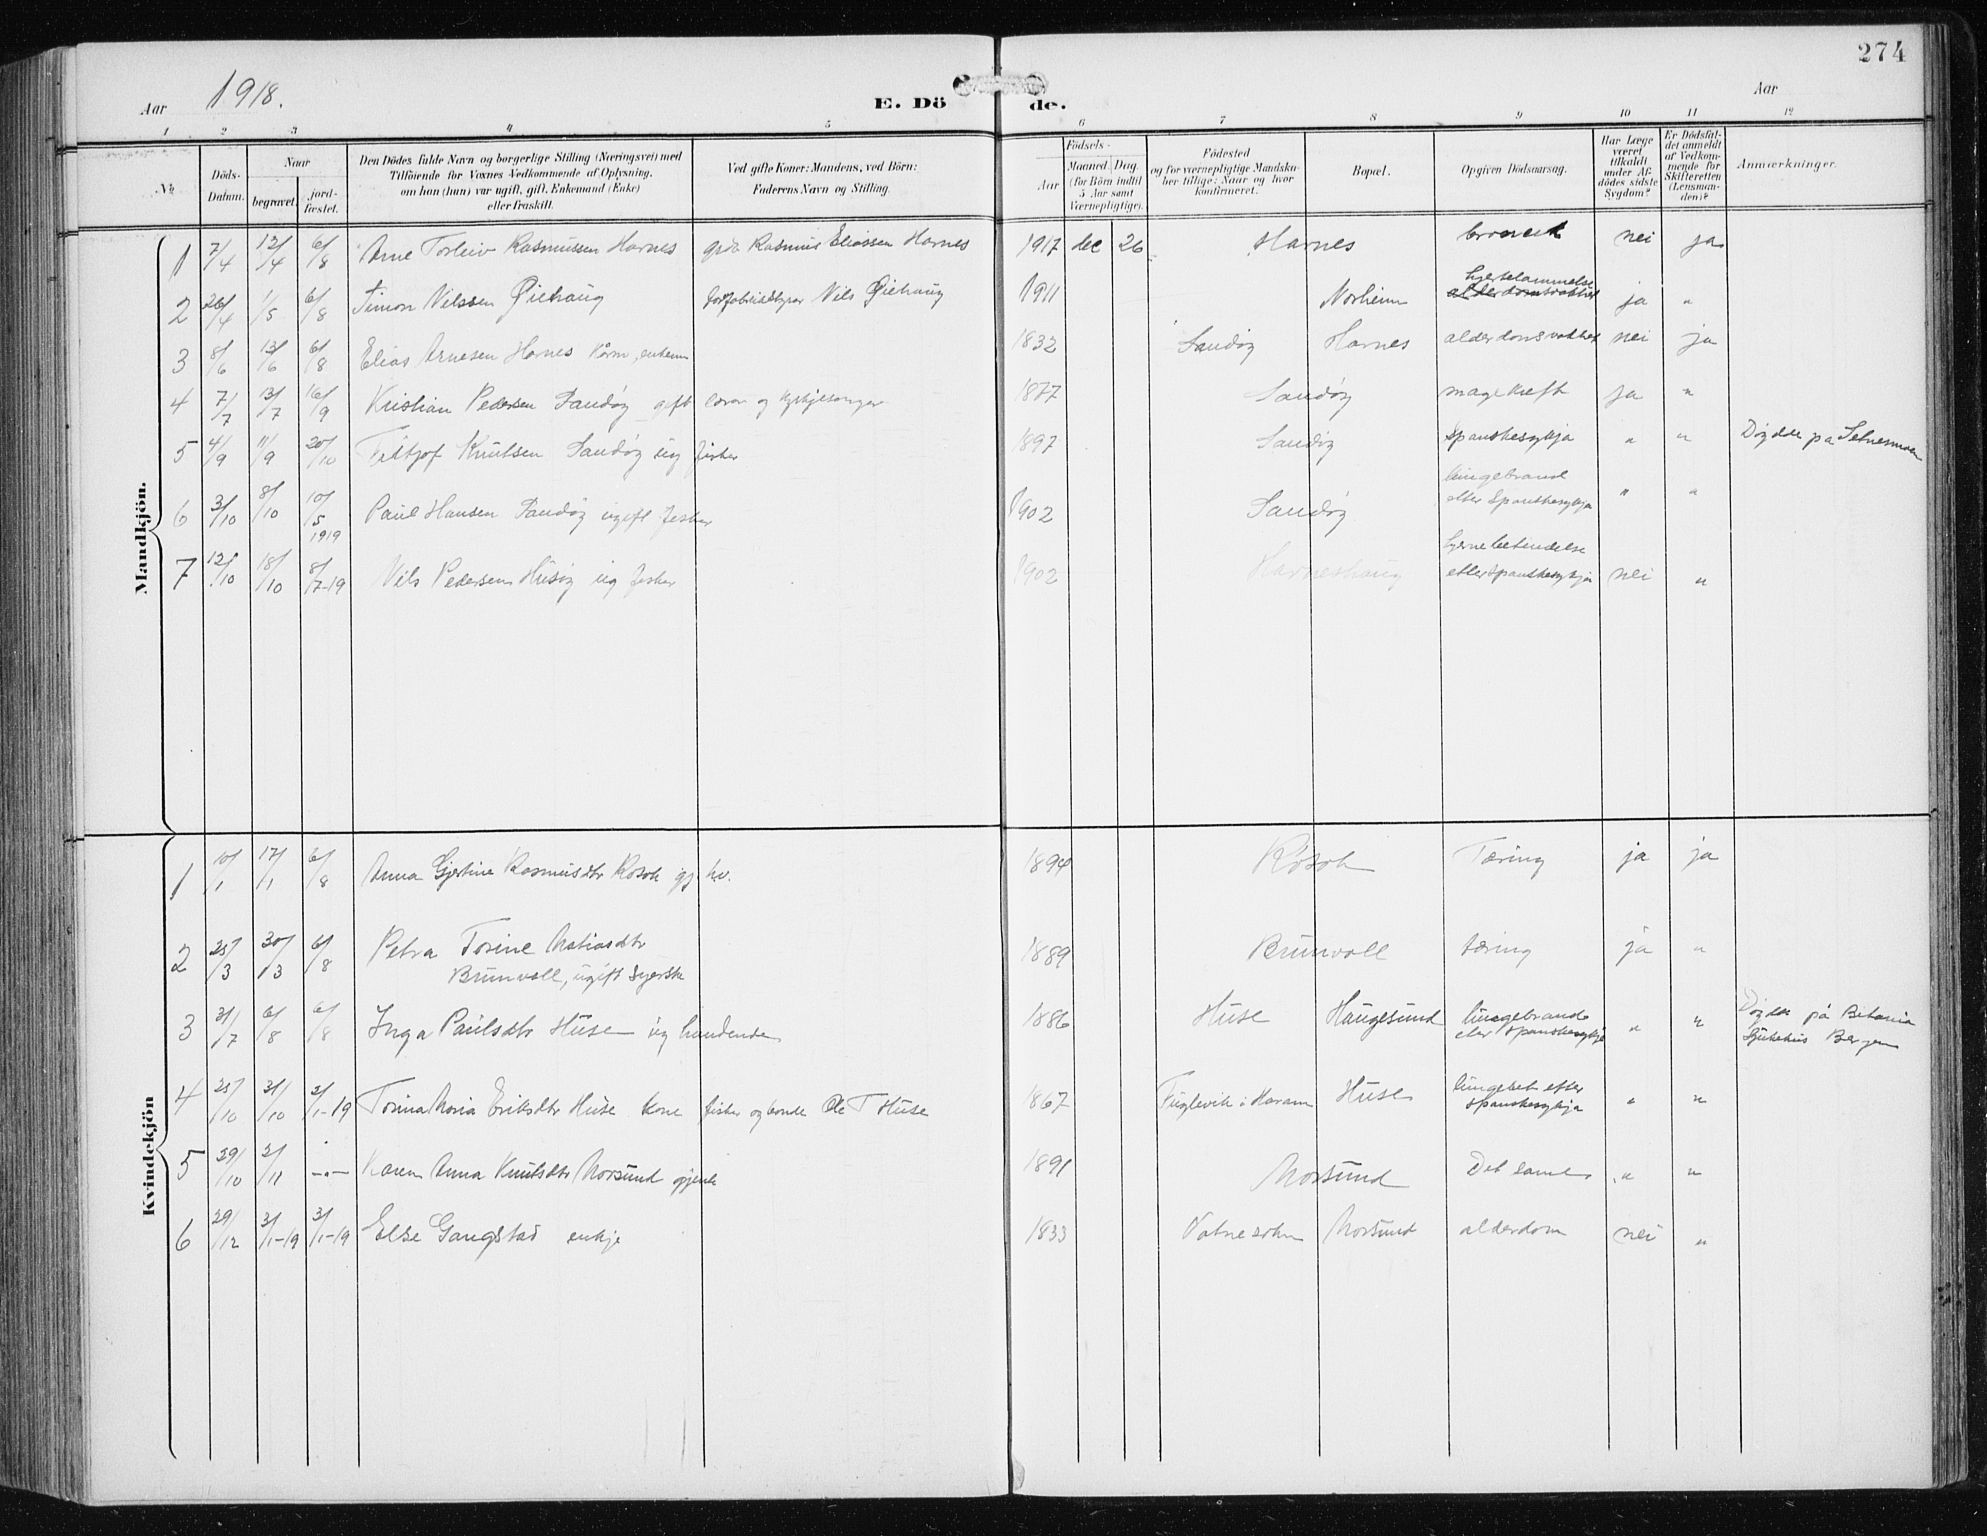 274
Aar 1918. E. Dö de. Aar
1 2 3 4 5 6 7 8 9 10 11 12
No. Döds-Datum. Naar begravet. jord-fæstet. Den Dödes fulde Navn og borgerlige Stilling (Næringsvei) med Tilföiende for Voxnes Vedkommende af Oplysning, om han (hun) var ugift, gift, Enkemand (Enke) eller fraskilt. Ved gifte Koner: Mandens, ved Börn: Faderens Navn og Stilling. Födsels- Aar Maaned Dag. (for Börn indtil 5 Aar samt Værnepligtige). Födested og for værnepligtige Mandskaber tillige: Naar og hvor konfirmeret. Bopæl. Opgiven Dödsaarsag. Har Læge været tilkaldt under Afdödes sidste Sygdom? Er Dödsfaldet anmeldt af Vedkommende for Skifteretten (Lensmanden)? Anmærkninger.
Mandkjön.
1 7/4 12/4 6/8 Arne Torleiv Rasmussen Harnes Rasmus Eliassen Harnes 1917 dec 26 Harnes nei ja
2 26/4 1/5 6/8 Simon Nilssen Øiehaug Nils Øiehaug 1911 Norheim hjertelammelse ja "
3 8/6 13/6 6/8 Elias Arnesen Harnes kårm, enkem 1832 Sandøy Harnes alderdomsvakhet nei ja
4 7/7 13/7 16/9 Kristian Pedersen Sandøy gift lærar og kyrkjesongar 1877 Sandøy magekreft ja "
5 4/9 11/9 20/10 Knutsen Sandøy ug fisker 1897 Sandøy Spanskesykja " " Døydde på Setnesmoen
6 3/10 8/10 10/5 1919 Paul Hansen Sandøy ugift fesker 1902 Sandøy lungebrand etter Spanskesykja " "
7 12/10 18/10 8/7-19 Nils Pedersen Husøy ug fesker 1902 Harneshaug hjernebetendelse etter Spanskesykja nei "
Kvindekjön
1 10/1 17/1 6/8 Anna Gjertine Rasmusdtr Røsok 1894 Røsok Tæring ja ja
2 25/3 30/3 6/8 Petra Torine Matiasdtr Brunvoll, ugift Syerske 1889 Brunvoll tæring ja "
3 31/7 6/8 6/8 Inga Paulsdtr Huse ug handlende 1886 Huse Haugesund lungebrand eter Spanskesykje " " Døydde på Betania Sjukehus Bergen
4 25/10 31/10 3/1-19 Torina Maria Eriksdtr Huse kone fisker og bonde Ole T Huse 1867 Fuglevik i Haram Huse lungebet etter spanskesykja " "
5 29/10 2/11 -"- Karen Anna Knutsdtr Morsund gjente 1891 Morsund Det same " "
6 29/12 3/1-19 3/1-19 Else Gangstad enkje 1833 Vatne sokn Morsund alderdom nei "